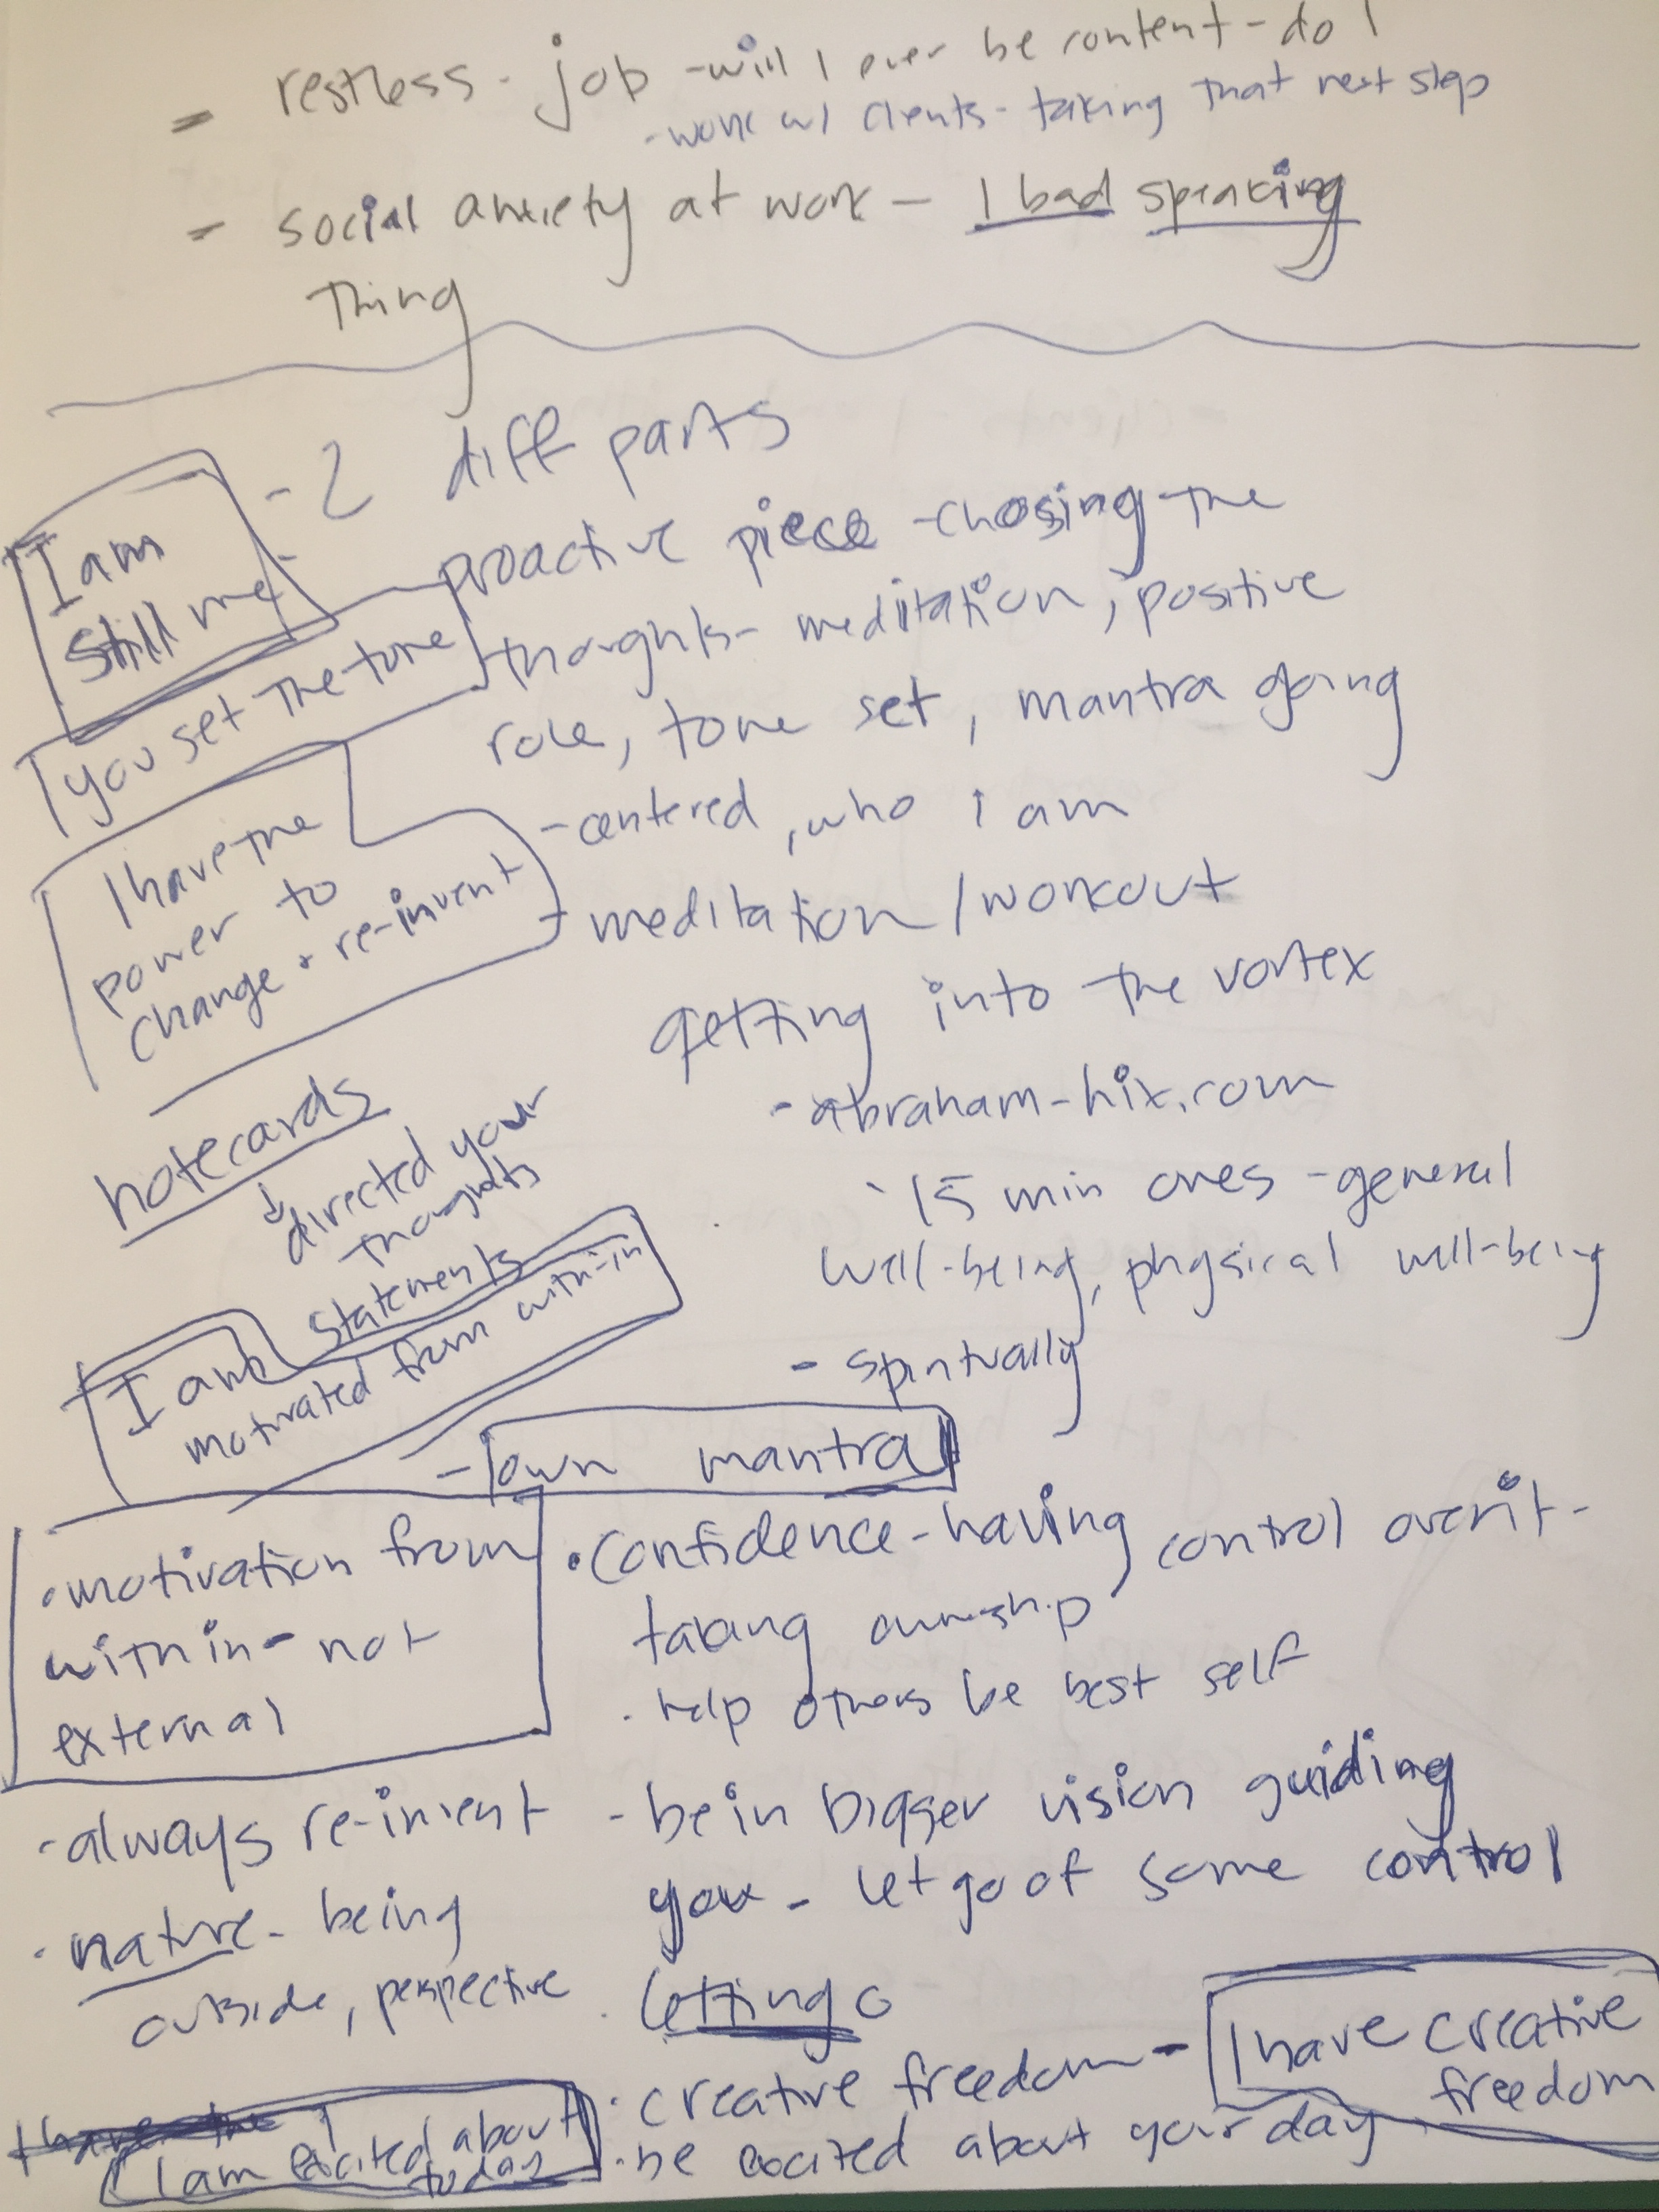 - restless - job - will I ever be content - do I
- work w/ clients - taking that next step
- social anxiety at work - 1 bad speaking
thing
- 2 diff parts
I am
still me
- proactive piece - chosing the
thoughts - meditation, positive
role, tone set, mantra going
you set the tone
- centered, who i am
I have the
power to
change + re-invent
- meditation / workout
getting into the vortex
- abraham-hix.com
notecards
directed your
thoughts
statements
- 15 min ones - general
well-being, physical well-being
- spiritually
I am
motivated from with-in
- own mantra
• motivation from
within - not
external
• confidence - having control over it -
taking ownership
• help others be best self
- always re-invent
- be in bigger vision guiding
you - let go of some control
• nature - being
outside, perspective
• letting o
• creative freedom - I have creative
freedom
I have the I
I am excited about
today
• be excited about your day